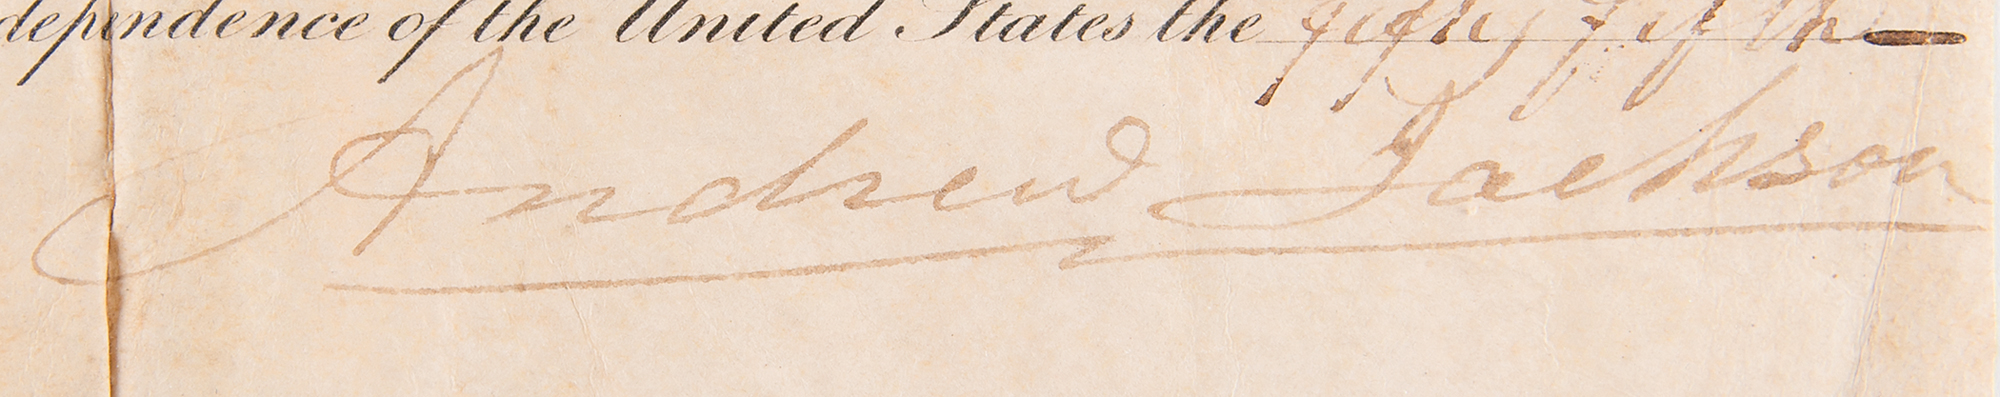 dependence of the United States the fifty fifth
Andrew Jackson